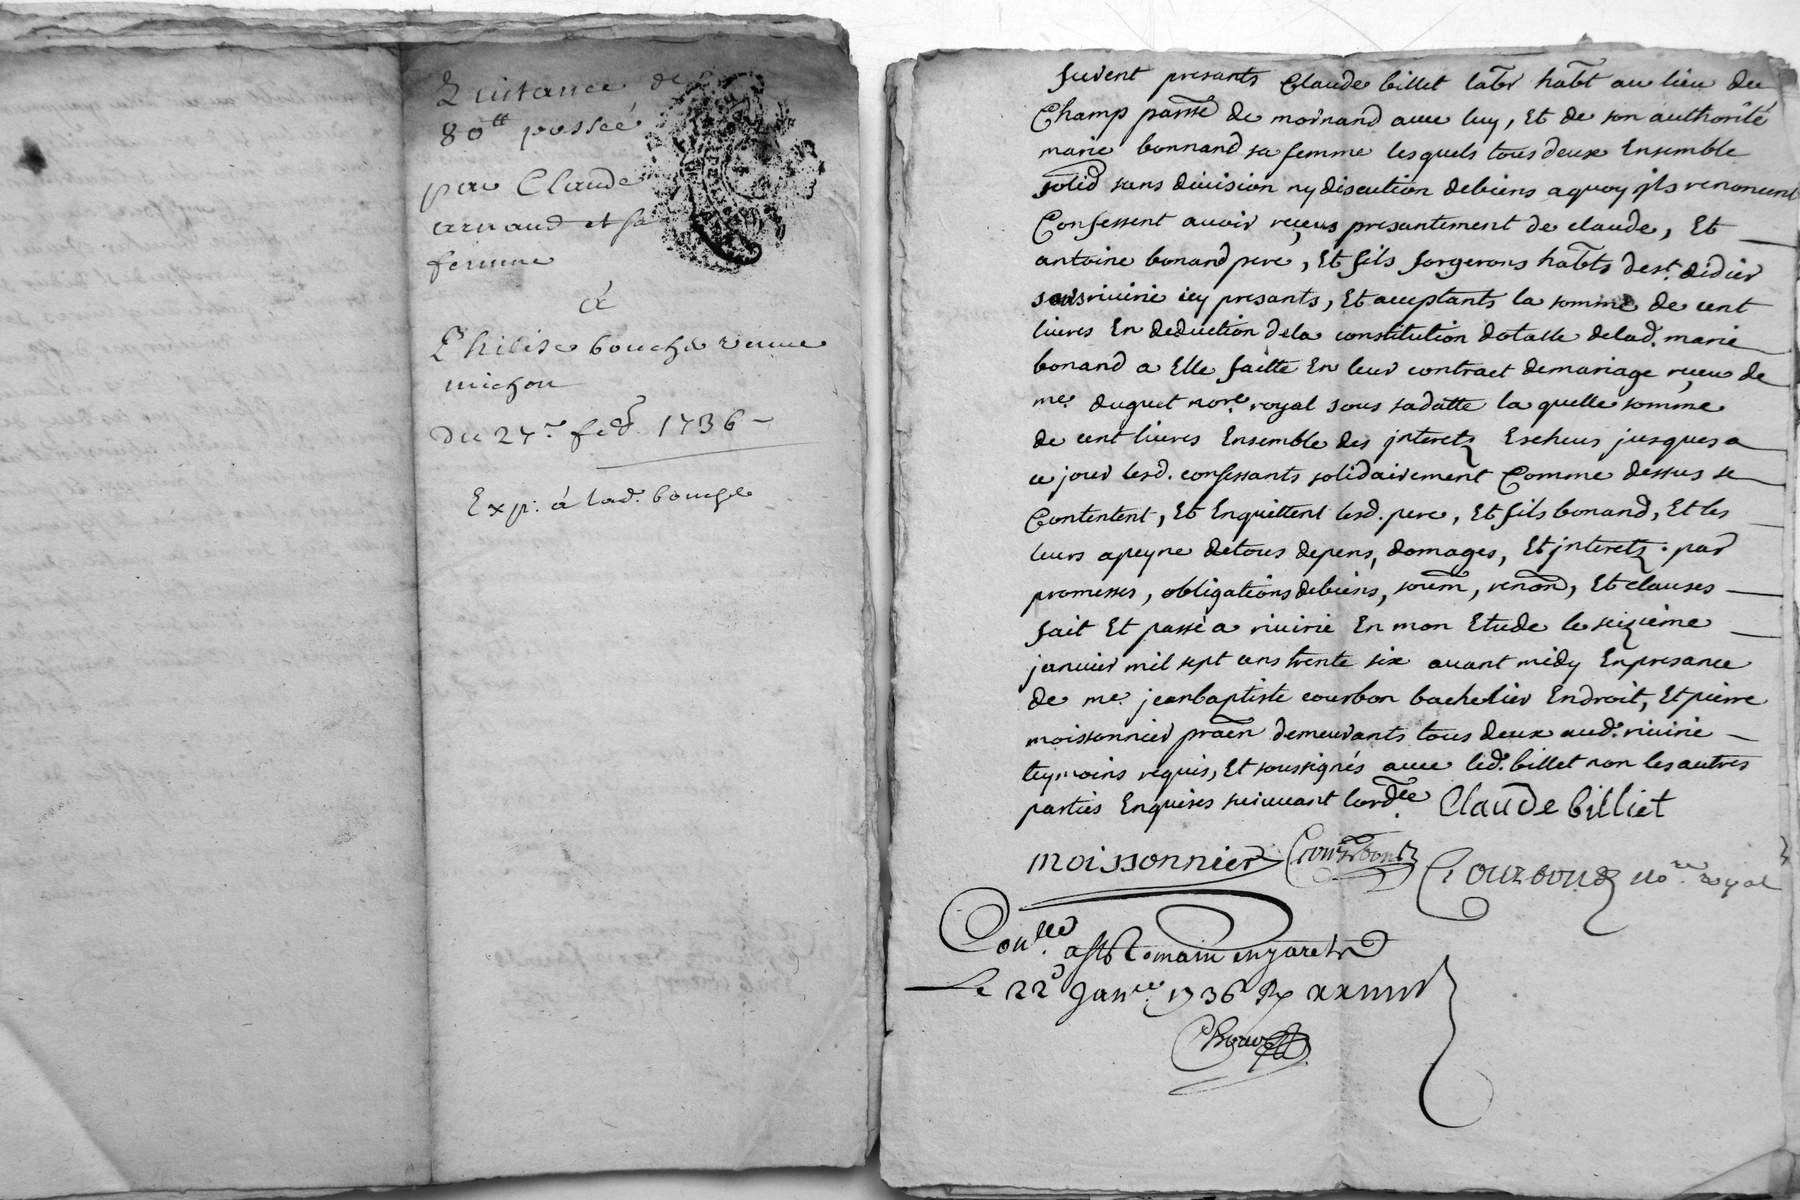 Quitance de
80tt passée
par Claude
arnaud et sa
femme
à
Philise bouche veuve
michon
Du 27e. feb. 1736 -
Exp: á lad. bouche
furent presants Claude billet labr habt au lieu du
Champ parsse de mornand avec luy, Et de son authorité
marie bonnand sa femme lesquels tous deux Ensemble
solid sans division ny discution debiens aquoy jls renoncent
Confessent avoir reçeus presantement de claude, Et
antoine bonard pere, Et fils forgerons habts de st. didier
sousriuirie icy presants, Et acceptants la somme de cent
livres En deduction dela constitution dotalle delad. marie
bonand a Elle faitte En leur contract demariage reçeu de
me. duguet nore. royal sous sadatte la quelle somme
de cent livres Ensemble des jnterets Escheus jusques a
ce jour lesd. confessants solidairement Comme dessus se
Contentent, Et Enquittent lesd. pere, Et fils bonand, Et les
leurs apeyne detous depens, domages, Et jnterets. par
promesses, obligations debiens, soum, renon, Et clauses
fait Et passé a riuirie En mon Etude le seizieme
janvier mil sept cens trente six avant midy Enpresance
de me. jeanbaptiste courbon bachelier Endroit, Et pierre
moissonnier praen demeurants tous deux aud. riuirie
teymoins requis, Et soussignés avec led. billet non les autres
parties Enquises suiuuant lordce. Claude billiet
moissonnier Courbon Courbon nore royal
Conlle. a st Romain en jarets
Le 22e Janre. 1736 R